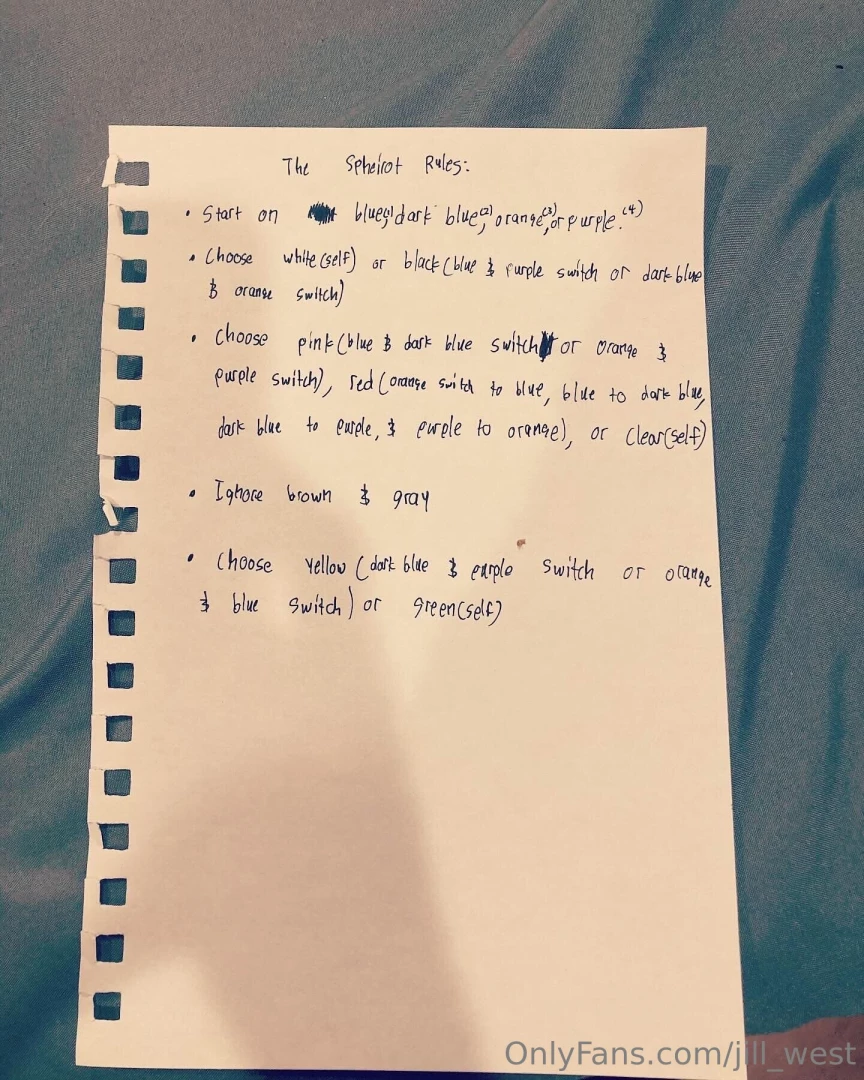 The Spheirot Rules:
• Start on blue,(1) dark blue,(2) orange,(3) or purple.(4)
• Choose white(self) or black(blue & purple switch or dark blue
& orange switch)
• Choose pink(blue & dark blue switch or orange &
purple switch), red(orange switch to blue, blue to dark blue,
dark blue to purple, & purple to orange), or clear(self)
• Ignore brown & gray
• Choose yellow (dark blue & purple switch or orange
& blue switch) or green(self)
OnlyFans.com/jill_west